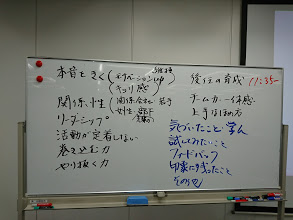 本音をきく
モチベーションup
キョリ感
関係性
若手
女性
リーダーシップ
活動が定着しない
巻き込む力
やり抜く力
後任の育成
11:35~
チームカ一体感
上手なほめ方
気づいたこと・学んだ
試してみたいこと
フィードバック
印象に残ったこと
その他